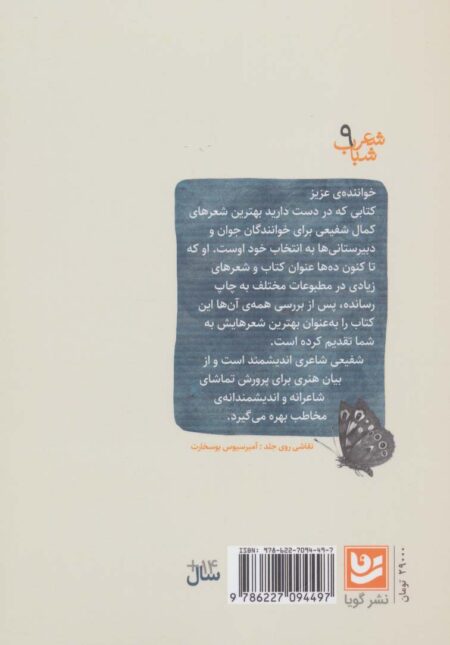 شعر
شباب ۹
خواننده‌ی عزیز
کتابی که در دست دارید بهترین شعرهای
کمال شفیعی برای خوانندگان جوان و
دبیرستانی‌ها به انتخاب خود اوست. او که
تا کنون ده‌ها عنوان کتاب و شعرهای
زیادی در مطبوعات مختلف به چاپ
رسانده، پس از بررسی همه‌ی آن‌ها این
کتاب را به‌عنوان بهترین شعرهایش به
شما تقدیم کرده است.
شفیعی شاعری اندیشمند است و از
بیان هنری برای پرورش تماشای
شاعرانه و اندیشمندانه‌ی
مخاطب بهره می‌گیرد.
نقاشی روی جلد : آمبرسیوس بوسخارت
+۱۴
سال
ISBN: 978-622-7094-49-7
9 786227 094497
نشر گویا
۲۹۰۰۰ تومان